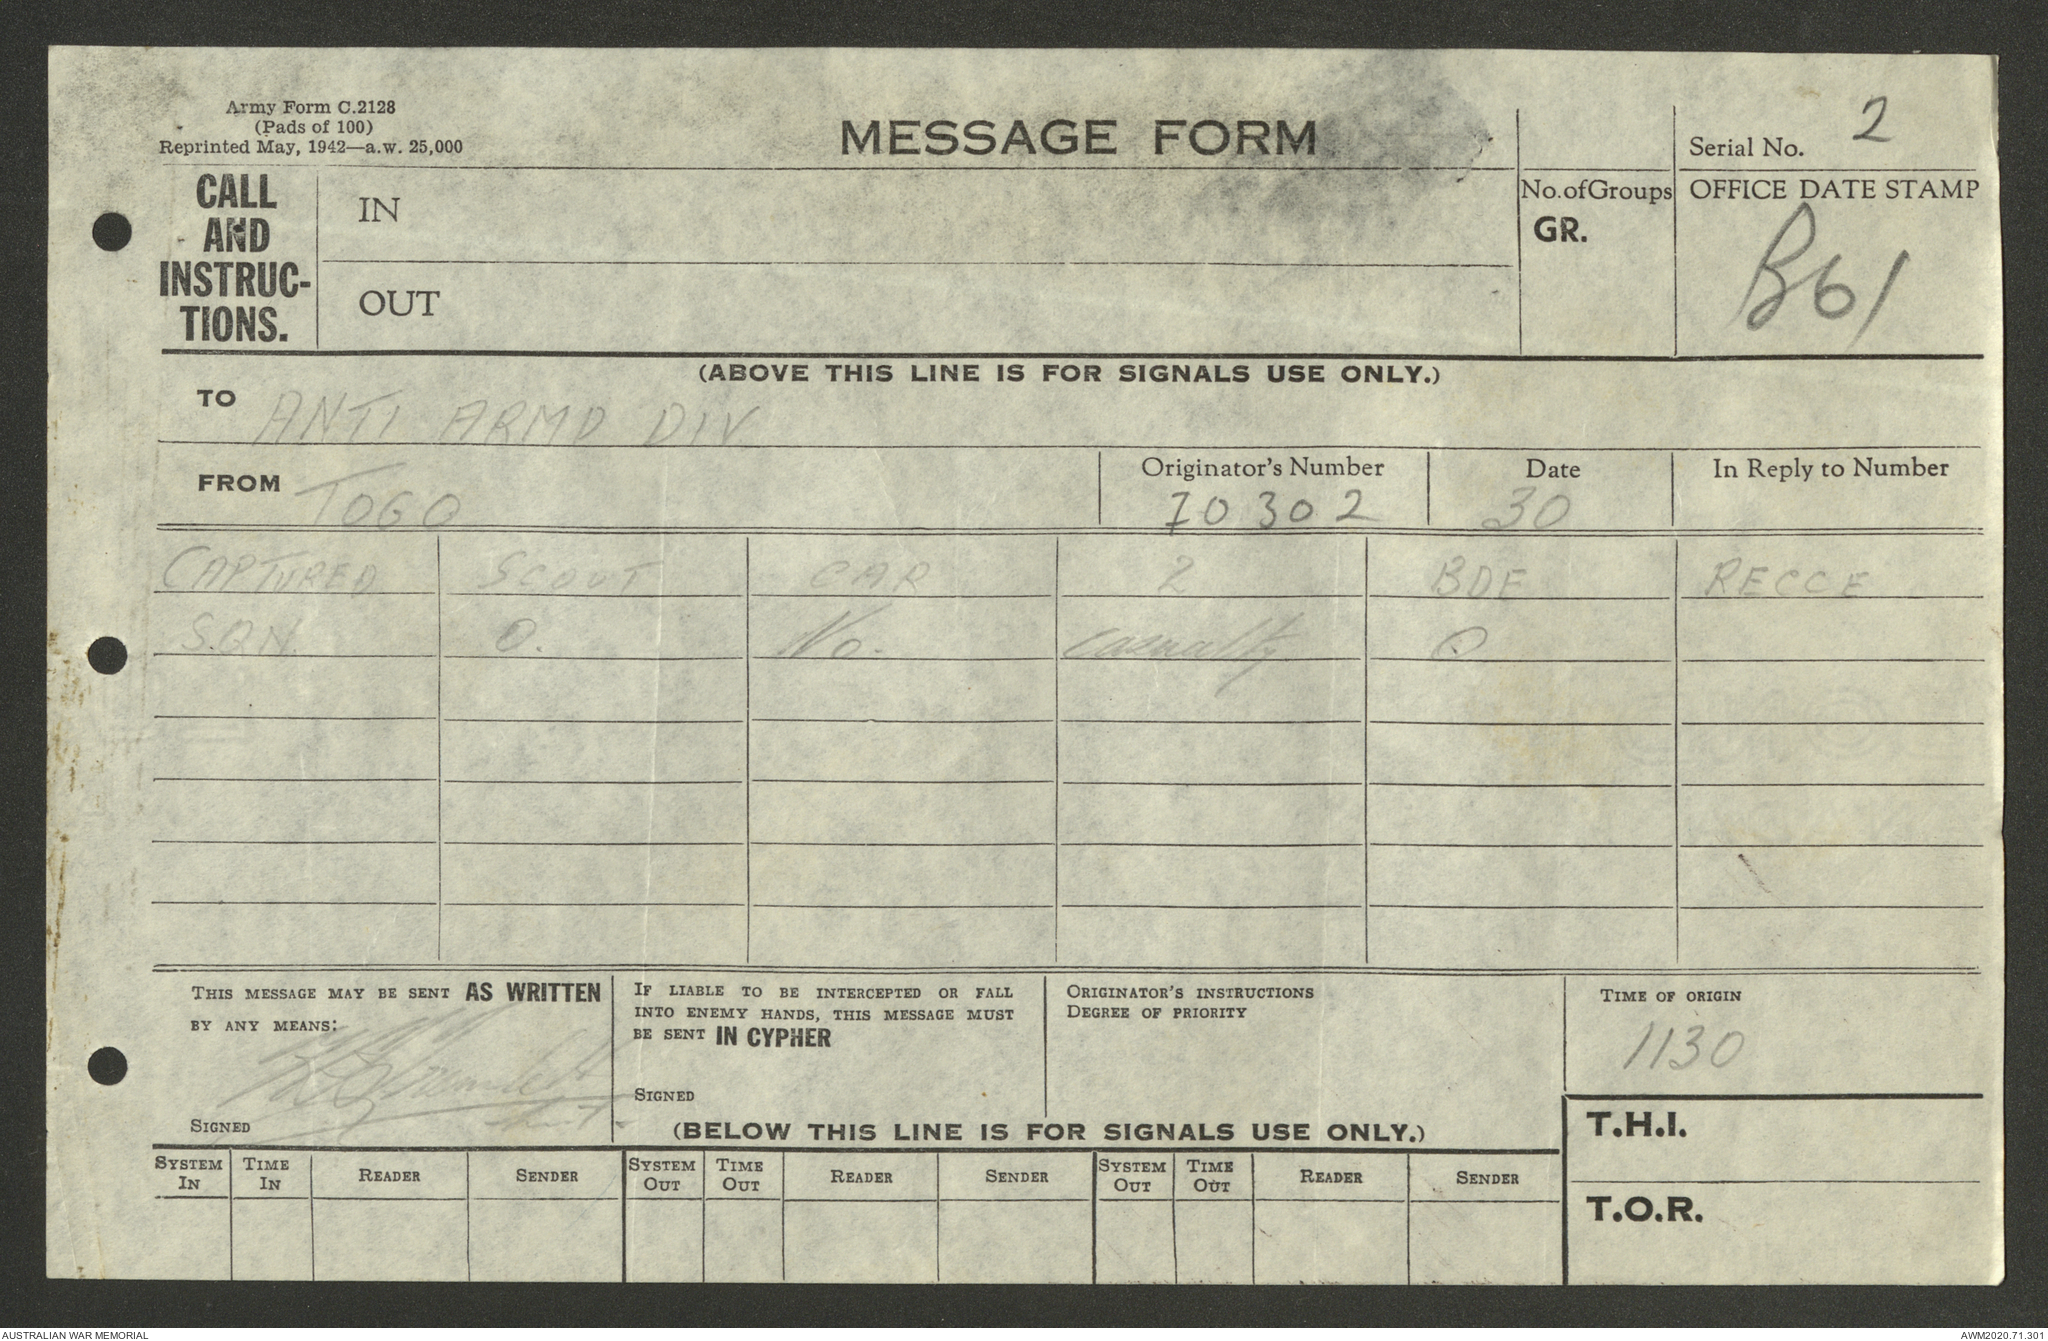 Army Form C.2128
(Pads of 100)
Reprinted May, 1942—a.w. 25,000
MESSAGE FORM
Serial No. 2
CALL
AND
INSTRUC-
TIONS.
IN
OUT
No. of Groups
GR.
OFFICE DATE STAMP
B61
(ABOVE THIS LINE IS FOR SIGNALS USE ONLY.)
TO ANTI ARMD DIV
FROM TOGO
Originator's Number
70302
Date
30
In Reply to Number
CAPTURED SCOUT CAR 2 BDE RECCE
S.Q.N. O. No. casualty O
THIS MESSAGE MAY BE SENT AS WRITTEN
BY ANY MEANS:
SIGNED
IF LIABLE TO BE INTERCEPTED OR FALL
INTO ENEMY HANDS, THIS MESSAGE MUST
BE SENT IN CYPHER
SIGNED
ORIGINATOR'S INSTRUCTIONS
DEGREE OF PRIORITY
TIME OF ORIGIN
1130
(BELOW THIS LINE IS FOR SIGNALS USE ONLY.)
T.H.I.
T.O.R.
SYSTEM IN
TIME IN
READER
SENDER
SYSTEM OUT
TIME OUT
READER
SENDER
SYSTEM OUT
TIME OUT
READER
SENDER
AUSTRALIAN WAR MEMORIAL
AWM2020.71.301